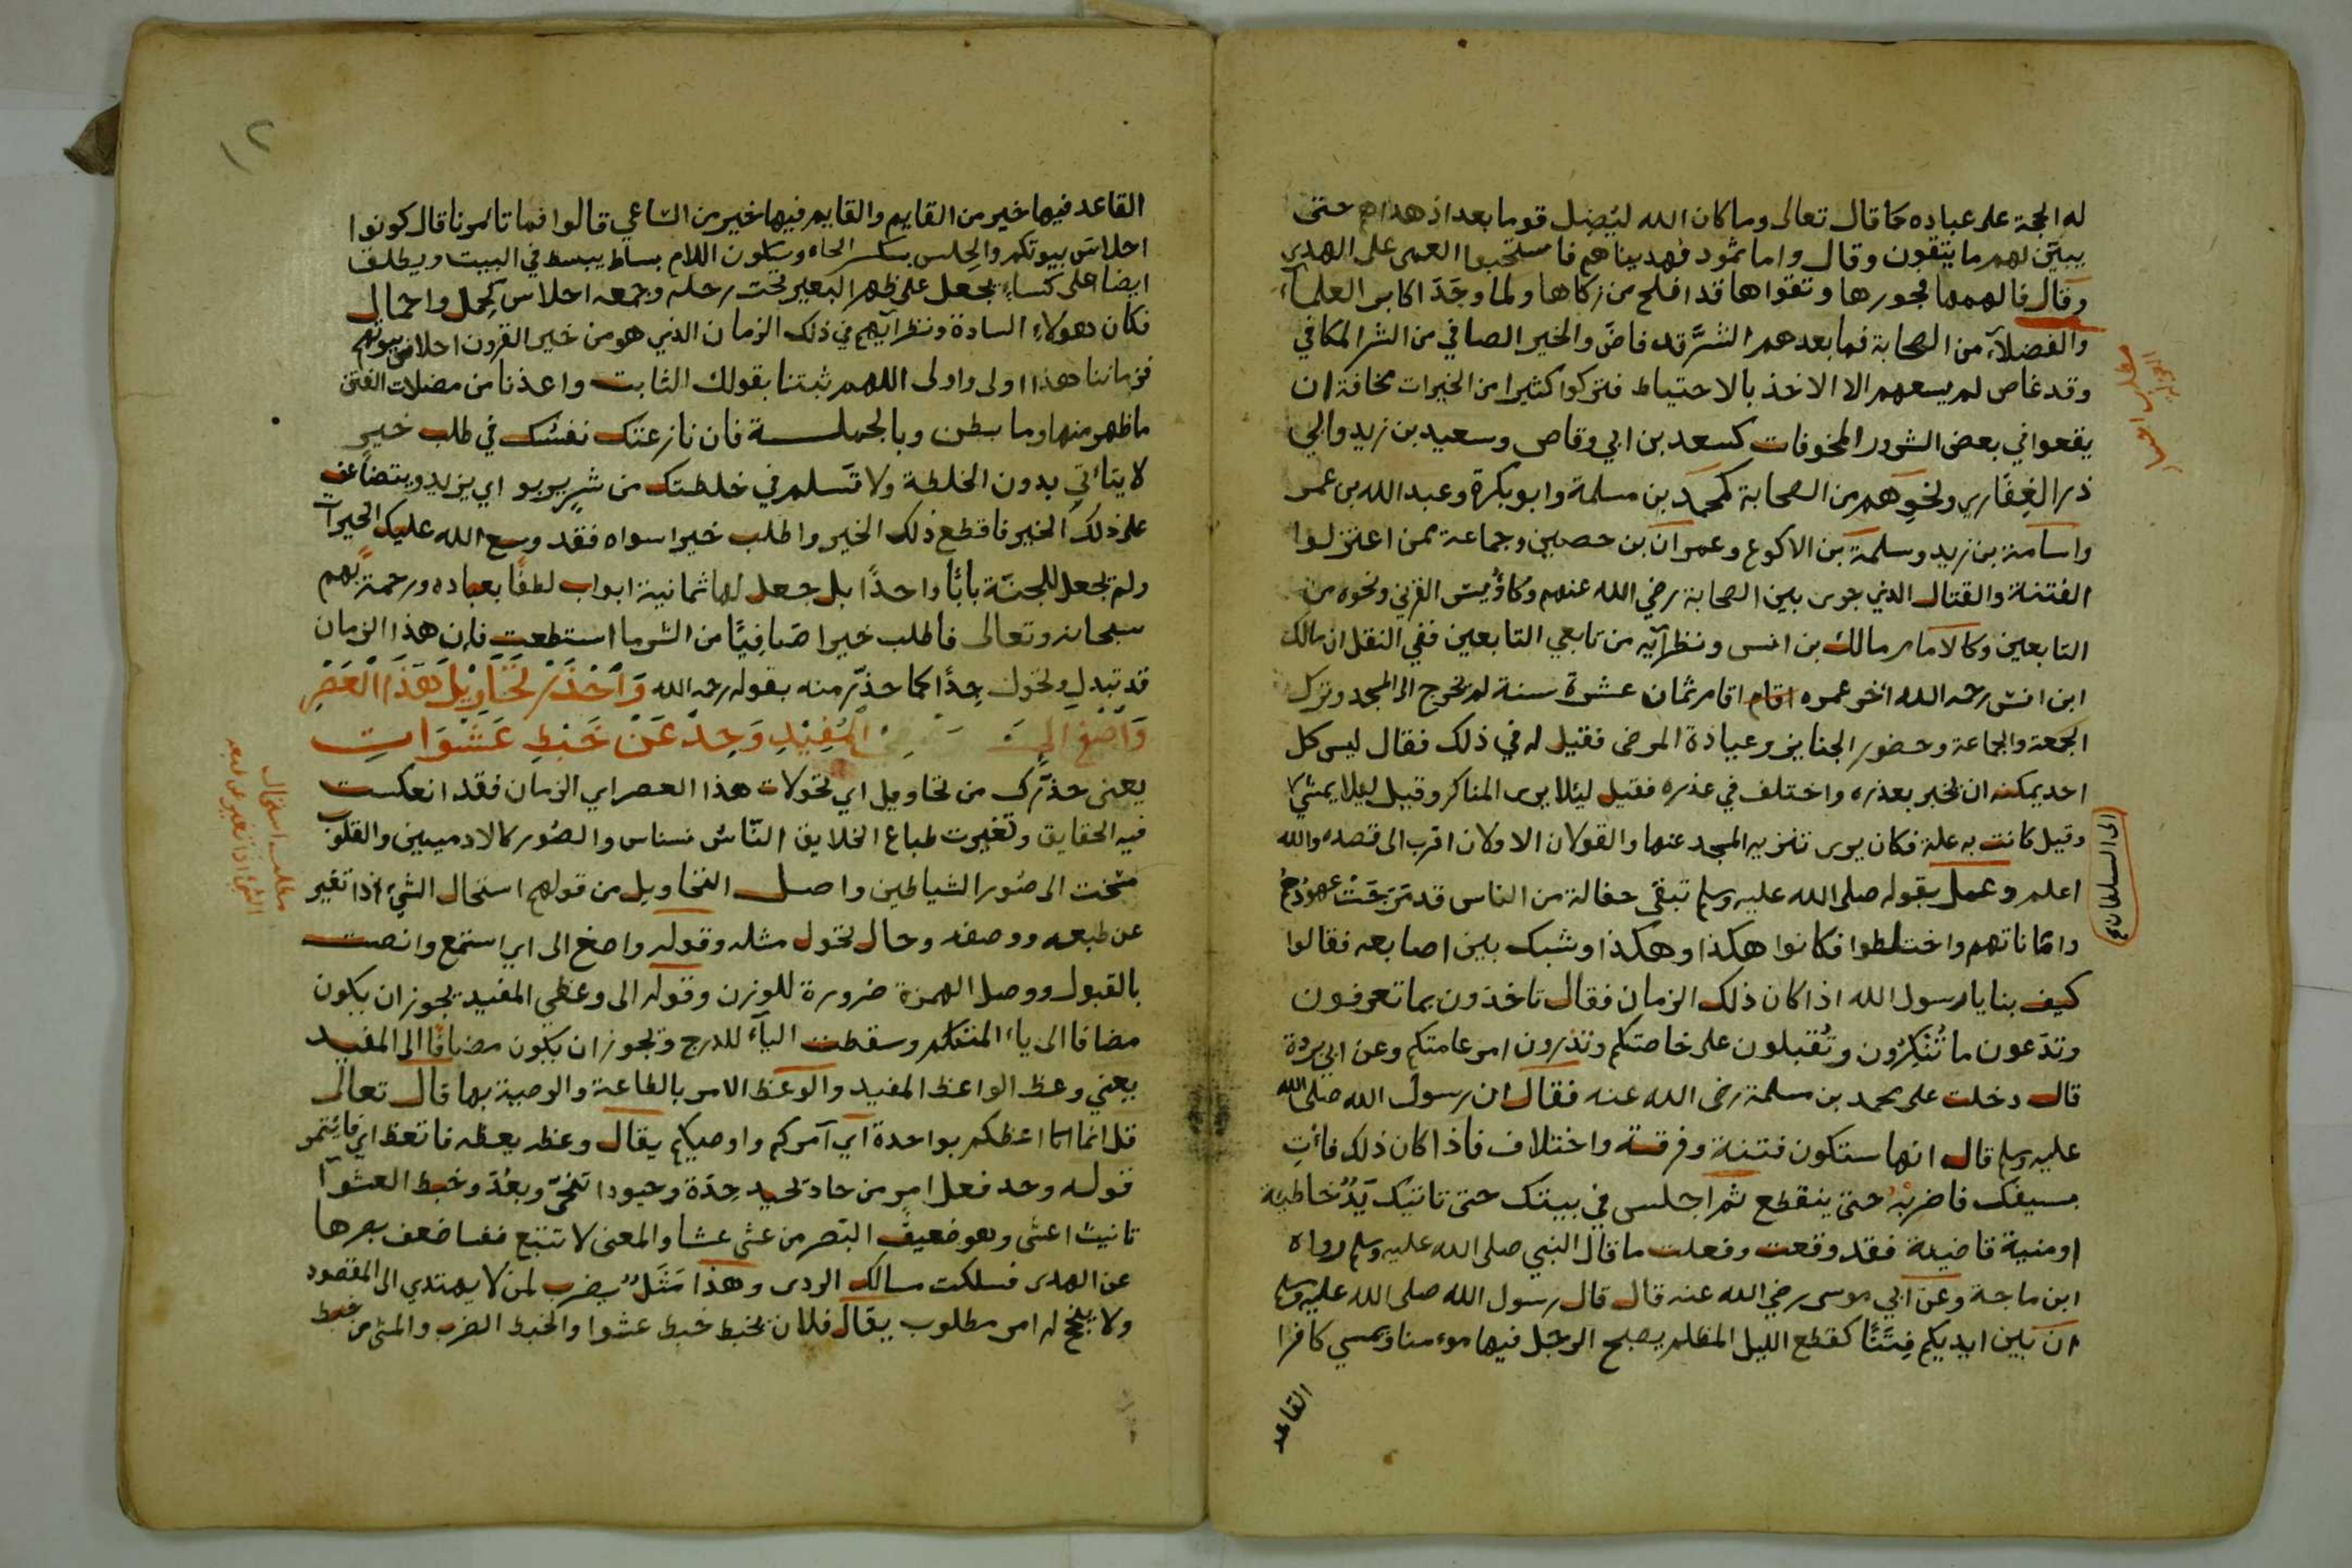 له الحجة على عباده كما قال تعالى وما كان الله ليُضِل قوما بعد اذ هداهم حتى
يبيّن لهم ما يتقون وقال واما ثمود فهديناهم فاستحبوا العمى على الهدى
وقال فالهمها فجورها وتقواها قد افلح من زكاها ولما وجَدَ اكابر العلمآء
والفضلآء من الصحابة فمابعدهم الشرَّ قد فاضَ والخير الصافي من الشر المكافي
وقد غاص لم يسعهم الا الاخذ بالاحتياط فتركوا كثيرا من الخيرات مخافة ان
يقعوا في بعض الشرور المخوفات كسعد بن ابي وقاص وسعيد بن زيد وابي
ذر الغِفاري ونحوهم من الصحابة كمحمد بن مسلمة وابو بكرة وعبد الله بن عمر
واسامة بن زيد وسلمة بن الاكوع وعمران بن حصين وجماعة ممن اعتزلوا
الفتنة والقتال الذي جرى بين الصحابة رضي الله عنهم وكاوُيس القرني ونحوه من
التابعين وكالامام مالك بن انس ونظرآيه من تابعي التابعين ففي النقل ان مالك
ابن انس رحمه الله اخر عمره اقام اقام ثمان عشرة سنة لم يخرج الى المسجد وترك
الجمعة والجماعة وحضور الجنايز وعيادة المرضى فقيل له في ذلك فقال ليس كل
احد يمكنه ان يخبر بعذره واختلف في عذره فقيل ليئلا يرى المناكر وقيل ليلا يمشي
الى السلطان صح
وقيل كانت به علة فكان يرى تنزيه المسجد عنها والقولان الاولان اقرب الى قصده والله
اعلم وعمل بقوله صلى الله عليه وسلم تبقى حفالة من الناس قد مَرَجَتْ عهودهم
واماناتهم واختلطوا فكانوا هكذا وهكذا وشبك بين اصابعه فقالوا
كيف بنا يا رسول الله اذا كان ذلك الزمان فقال تاخذون بما تعرفون
وتدَعون ما تُنْكِرُون وتُقبلون على خاصتكم وتذرون امر عامتكم وعن ابي بردة
قال دخلت على محمد بن مسلمة رضى الله عنه فقال ان رسول الله صلى الله
عليه وسلم قال انها ستكون فتنة وفرقة واختلاف فاذا كان ذلك فأتِ
بسيفك فاضربْهُ حتى ينقطع ثم اجلس في بيتك حتى تاتيك يَدٌ خاطية
او منية قاضية فقد وقعت وفعلت ما قال النبي صلى الله عليه وسلم رواه
ابن ماجة وعن ابي موسى رضي الله عنه قال قال رسول الله صلى الله عليه وسلم
ان بَين ايديكم فِتَنًا كقطع الليل المظلم يصبح الرجل فيها موءمنا ويمسي كافرا
القاعد
١٢
القاعد فيها خير من القايم والقايم فيها خير من السّاعي قالوا فما تامرنا قال كونوا
احلاسَ بيوتكم والحِلس بكسر الحاء وسكون اللام بساط يبسط في البيت ويطلق
ايضا على كساء يجعل على ظهر البعير تحت رحله وجمعه احلاس كحِمل واحمال
فكان هولاء السادة ونظرآيهم في ذلك الزمان الذي هو من خير القرون احلاس بيوتهم
فزماننا هذا اولى واولى اللهم ثبتنا بقولك الثابت واعذنا من مضلات الفتن
ما ظهر منها وما بطن وبالجملة فان نازعتك نفسُك في طلب خير
لا يتاتى بدون الخلطة ولا تَسلم في خلطتك من شرٍ يربو اي يزيد ويتضاعف
على ذلك الخير فاقطع ذلك الخير واطلب خيرا سواه فقد وسع الله عليك الخيرآت
ولم يجعل للجنّة بابًا واحدًا بل جعل لها ثمانية ابواب لطفًا بعباده ورحمةً بهم
سبحانه وتعالى فاطلب خيرا صَافِيًا من الشر ما استطعت فإن هذا الزمان
قد تبدل وتحول جِدًّا كما حذّر منه بقوله رحمه الله وَاحْذَرْ تَحَاوِيْلَ هَذَا الْعَصْرِ
وَاصْغَ إلى المُفِيْدِ وَحِدْ عَنْ خَبْطِ عَشْوَاتِ
يعنى حذّرك من تحاويل اي تحولات هذا العصر اي الزمان فقد انعكست
فيه الحقايق وتغيرت طباع الخلايق النّاسُ نسناس والصُور كالادميين والقلوب
مُسِخت الى صُور الشياطين واصل التحاويل من قولهم استحال الشيء اذا تغير
مطلب استحال
الشيء اذا تغير عن طبعه
عن طبعه ووصفه وحال تحول مثله وقوله واصغ الى اي استمع وانصت
بالقبول ووصل الهمزة ضرورة للوزن وقوله الى وعظي المفيد يجوز ان يكون
مضافا الى ياء المتكلم وسقطت اليآء للدرج ويجوز ان يكون مضافًا الى المفيد
يعني وعظ الواعظ المفيد والوعظ الامر بالطاعة والوصية بها قال تعالى
قل انما اعظكم بواحدة اي آمركم واوصيكم يقال وعظه يعظه فاتعظ اي فائتمر
قوله وحد فعل امر من حاد يحيد حِدَة وحيودا تنحّى وبعُدَ وخبط العشوآ
تانيث اعشى وهو ضعيف البَصر من عشى عشا والمعنى لا تتبع نفسا ضعف بصرها
عن الهدى فسلكت مسالك الردى وهذا مَثَلٌ يضرب لمن لا يهتدي الى المقصود
ولا ينجح له امر مطلوب يقال فلان يخبط خبط عشوا والخبط الضرب والمشي من خبط